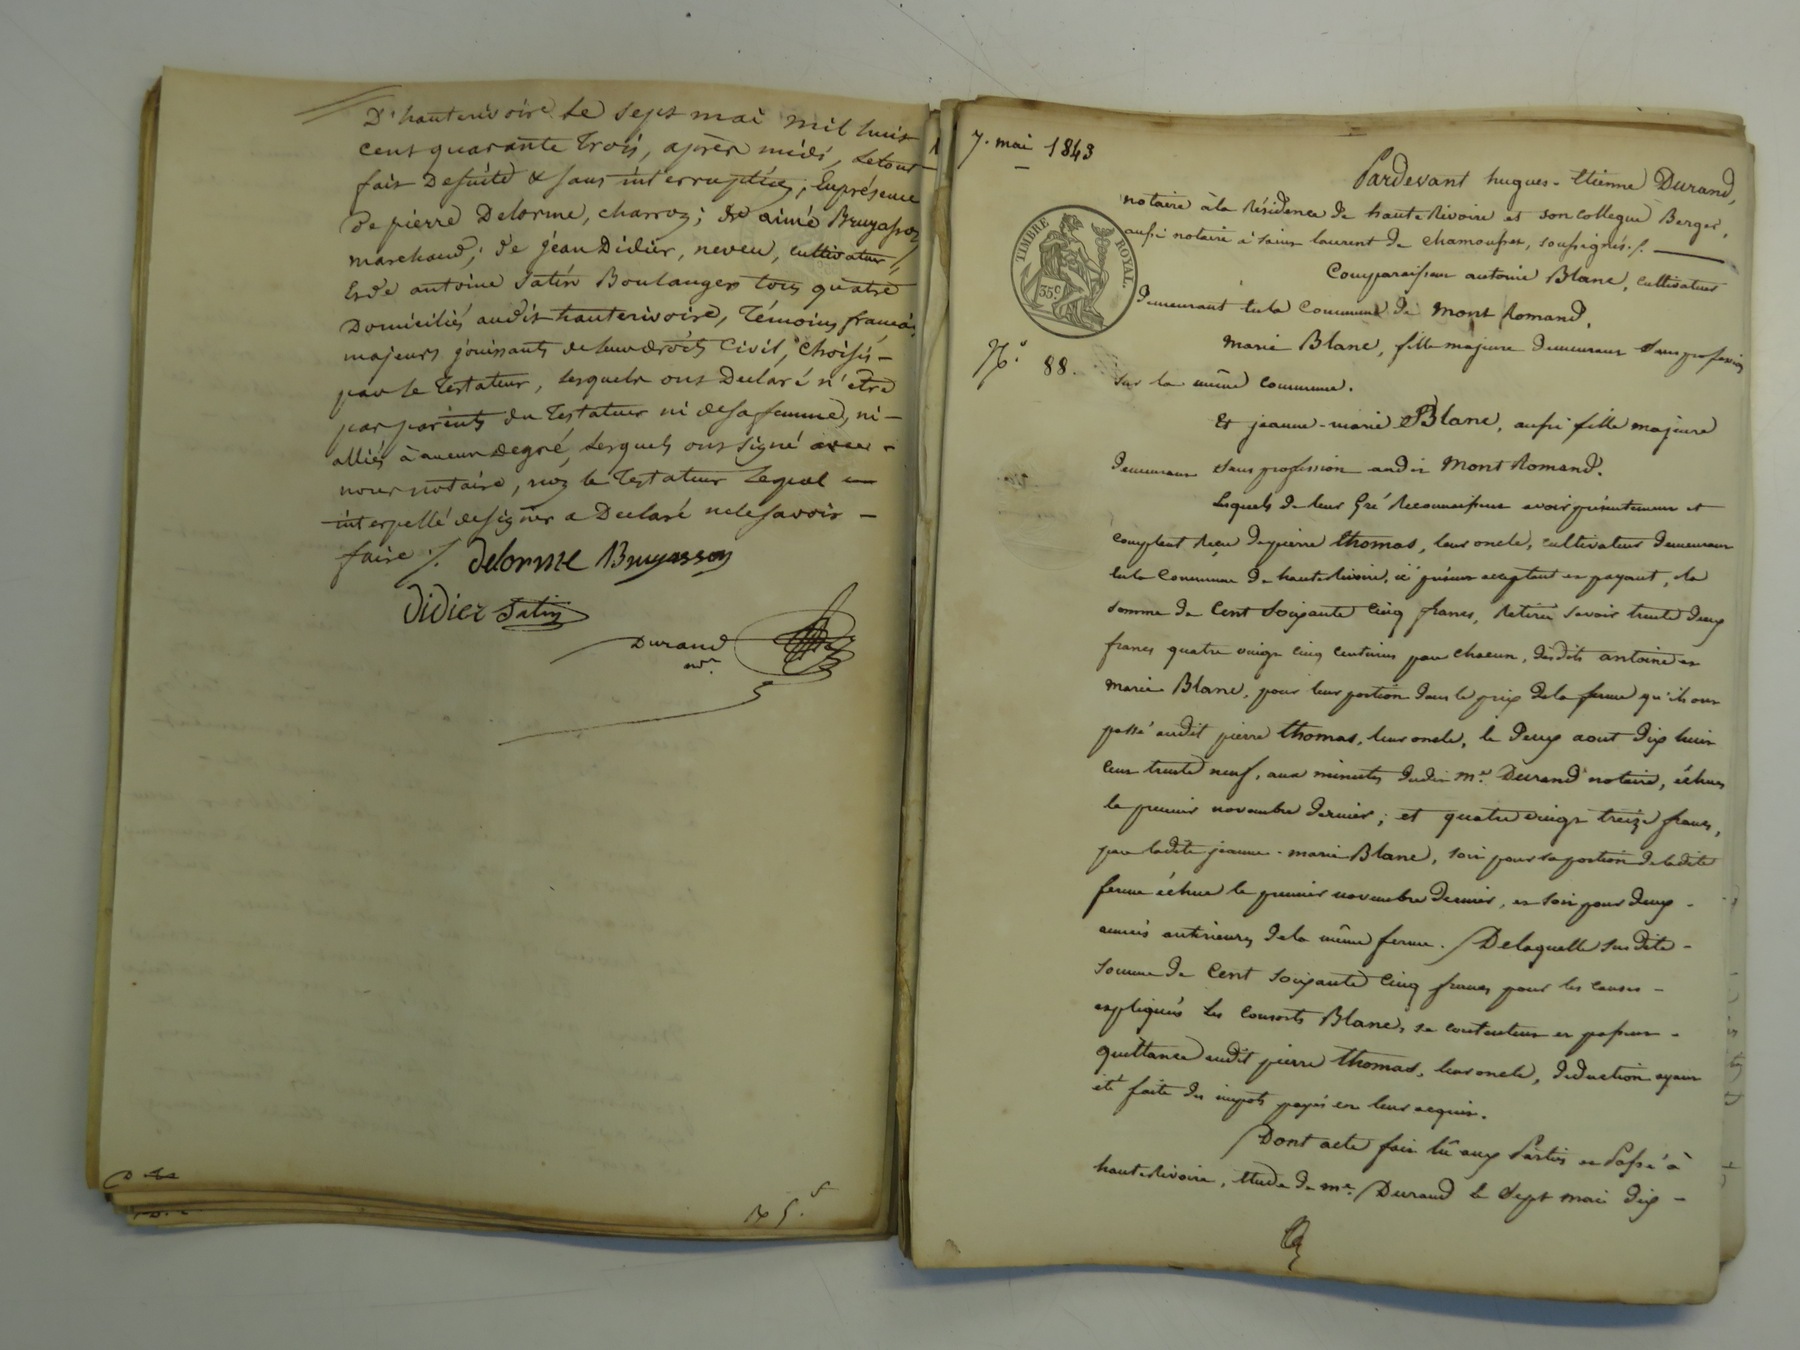 D'hauterivoire le sept mai mil huit
cent quarante trois, après midi, le tout
fait desuite & sans interruption; En présence
de pierre Delorme, charron; de aimé Bruyasson
marchand; de jean Didier, neveu, cultivateur,
Et de antoine Satin Boulanger tous quatre
Domiciliés audit hauterivoire, Témoins français
majeurs jouissants de leurs droits civil, choisis
par le Testateur, lesquels ont Declaré n'être
pas parents du Testateur ni de sa femme, ni
alliés à aucun degré, lesquels ont signé avec
nous notaire, non le Testateur lequel
interpellé de signer a Declaré ne le savoir
faire /. delorme Bruyasson
Didier Satin
Durand
nre
R 5.f
7. mai 1843
TIMBRE ROYAL.
35c
No. 88.
Pardevant hugues-Etienne Durand,
notaire à la résidence de hauterivoire et son collegue Berger,
aussi notaire à saint laurent de chamousset, soussignés /.
Comparaissent antoine Blanc, cultivateur
demeurant en la commune de Mont Romand,
Marie Blanc, fille majeure demeurant sans profession
sur la même commune.
Et jeanne-marie Blanc, aussi fille majeure
demeurant sans profession audit Mont Romand.
Lesquels de leur gré reconnaissent avoir présentement et
comptant reçu de pierre thomas, leur oncle, cultivateur demeurant
en la commune de hauterivoire, ici présent acceptant et payant, la
somme de Cent soixante cinq francs, Retirée savoir trente deux
francs quatre vingt cinq centimes par chacun, desdits antoine et
marie Blanc, pour leur portion dans le prix de la ferme qu'ils ont
passé audit pierre thomas, leur oncle, le deux aout dix huit
cent trente neuf, aux minutes dudit me. Durand notaire, échue
le premier novembre dernier; et quatre vingt treize francs,
par ladite jeanne-marie Blanc, soit pour sa portion de ladite
ferme échue le premier novembre dernier, et soit pour deux
années antérieures de la même ferme. De laquelle sus dite
somme de Cent soixante cinq francs pour les causes
expliquées les consorts Blanc, se contentent et passent
quittance audit pierre thomas, leur oncle, déduction ayant
été faite des impots payés en leur acquis.
Dont acte fait lû aux Parties et Passé à
hauterivoire, étude de me. Durand le sept mai dix